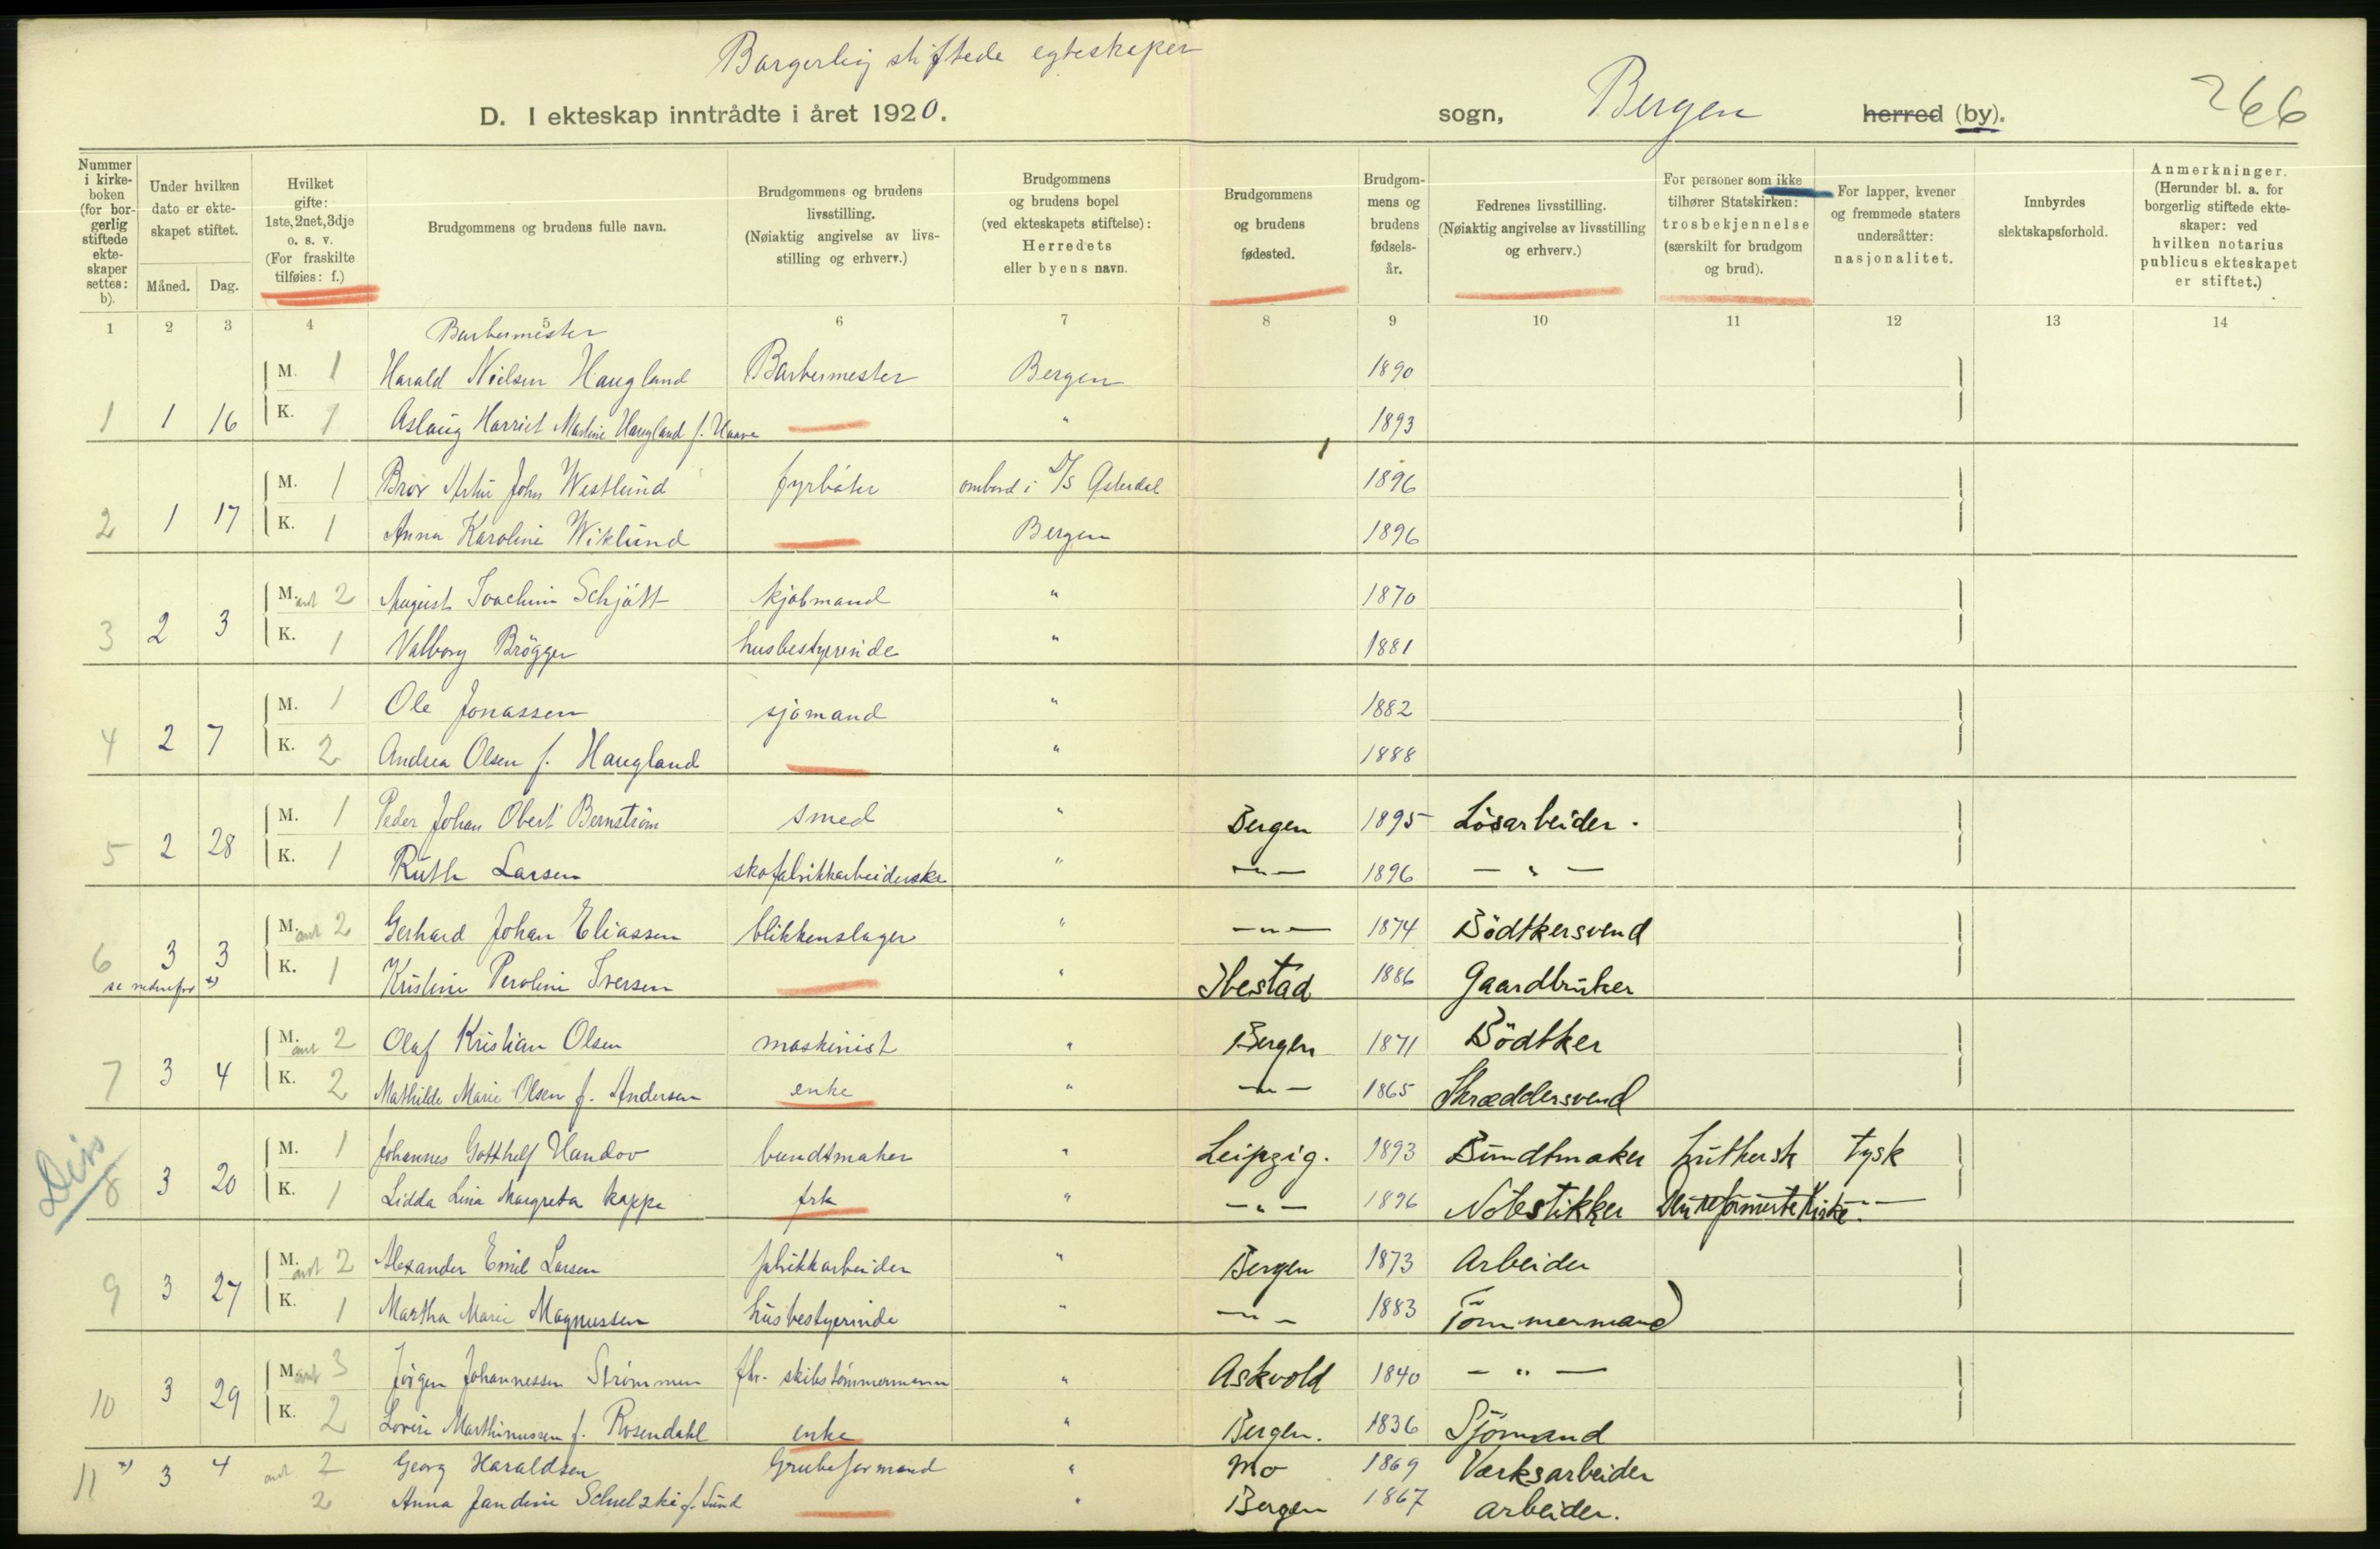 Borgerlig stiftede egteskaper
D. I ekteskap inntrådte i året 1920.
sogn, Bergen herred (by). 266
Nummer i kirkeboken (for borgerlig stiftede ekteskaper settes: b).
Under hvilken dato er ekteskapet stiftet.
Måned. Dag.
Hvilket gifte: 1ste, 2net, 3dje o. s. v. (For fraskilte tilføies: f.)
Brudgommens og brudens fulle navn.
Brudgommens og brudens livsstilling. (Nøiaktig angivelse av livsstilling og erhverv.)
Brudgommens og brudens bopel (ved ekteskapets stiftelse): Herredets eller byens navn.
Brudgommens og brudens fødested.
Brudgommens og brudens fødselsår.
Fedrenes livsstilling. (Nøiaktig angivelse av livsstilling og erhverv.)
For personer som ikke tilhører Statskirken: trosbekjennelse (særskilt for brudgom og brud).
For lapper, kvener og fremmede staters undersåtter: nasjonalitet.
Innbyrdes slektskapsforhold.
Anmerkninger. (Herunder bl. a. for borgerlig stiftede ekteskaper: ved hvilken notarius publicus ekteskapet er stiftet.)
1 2 3 4 5 6 7 8 9 10 11 12 13 14
Barbermester
M. 1 Harald Nielsen Haugland Barbermester Bergen 1890
1 1 16 K. 1 Aslaug Harriet Martine Haugland f. " 1893
M. 1 Bror Artur John Westlund fyrbøter ombord i D/S 1896
2 1 17 K. 1 Anna Karoline Wiklund Bergen 1896
M. ant 2 August Joachim Schjøtt kjøbmand " 1870
3 2 3 K. 1 Valborg Brögger husbestyerinde " 1881
M. 1 Ole Jonassen sjømand " 1882
4 2 7 K. 2 Andrea Olsen f. Haugland " 1888
M. 1 Peder Johan Obert Bernstrøm smed " Bergen 1895 Løsarbeider.
5 2 28 K. 1 Ruth Larsen skofabrikkarbeiderske " — " — 1896 — " —
M. ant 2 Gerhard Johan Eliassen blikkenslager " — " — 1874 Bödtkersvend
6 3 3 K. 1 Kristine Peroline Iversen " Ibestad 1886 Gaardbruker
se nedenfor *)
M. ant 2 Olaf Kristian Olsen maskinist " Bergen 1871 Bödtker
7 3 4 K. 2 Mathilde Marie Olsen f. Andersen enke " — " — 1865 Skræddersvend
M. 1 Johannes Gotthelf Handov bundtmaker " Leipzig. 1893 Bundtmaker Luthersk tysk
8 3 20 K. 1 Lidda Lina Margreta Kappe frk " — " — 1896 Notestikker Den reformerte Kirke — " —
M. ant 2 Alexander Emil Larsen fabrikkarbeider " Bergen 1873 Arbeider
9 3 27 K. 1 Martha Marie Magnussen husbestyerinde " — " — 1883 Tömmermand
M. ant 3 Jørgen Johannessen Strømmen fhv. skibstømmermann " Askvold 1840 — " —
10 3 29 K. 2 Lovise Marthinussen f. Rosendahl enke " Bergen. 1836 Sjömand
11 *) 3 4 ant 2 Georg Haraldsen Grubeformand " Mo 1869 Værksarbeider
2 Anna Jandine Schulzki f. Sund " Bergen 1867 Arbeider.